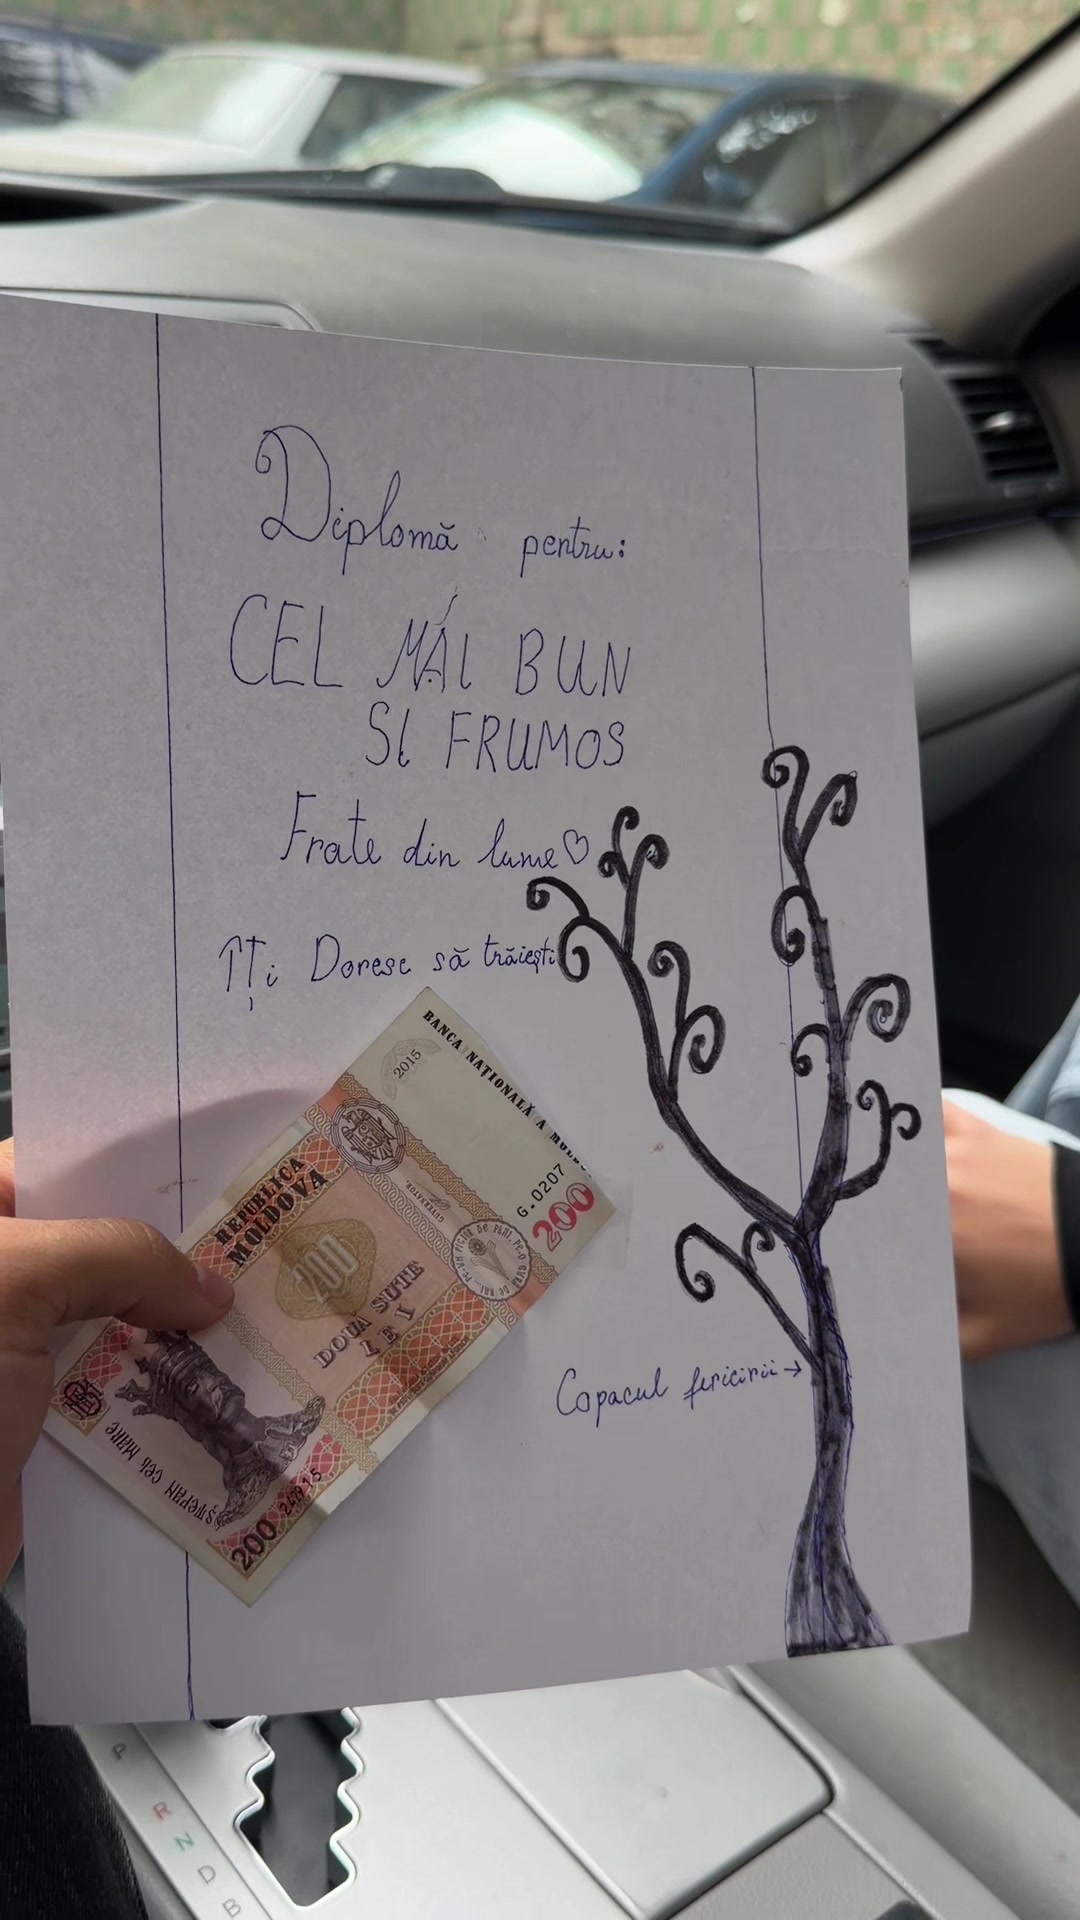 Diplomă pentru:
CEL MAI BUN
SI FRUMOS
Frate din lume♡
ÎȚi Doresc să trăiești
BANCA NAȚIONALĂ A MOLD
2015
G.0207
200
REPUBLICA
MOLDOVA
GUVERNATOR,
200
DOUĂ SUTE
LEI
ȘTEFAN CEL MARE
200 242915
Copacul fericirii →
P
R
N
D
B